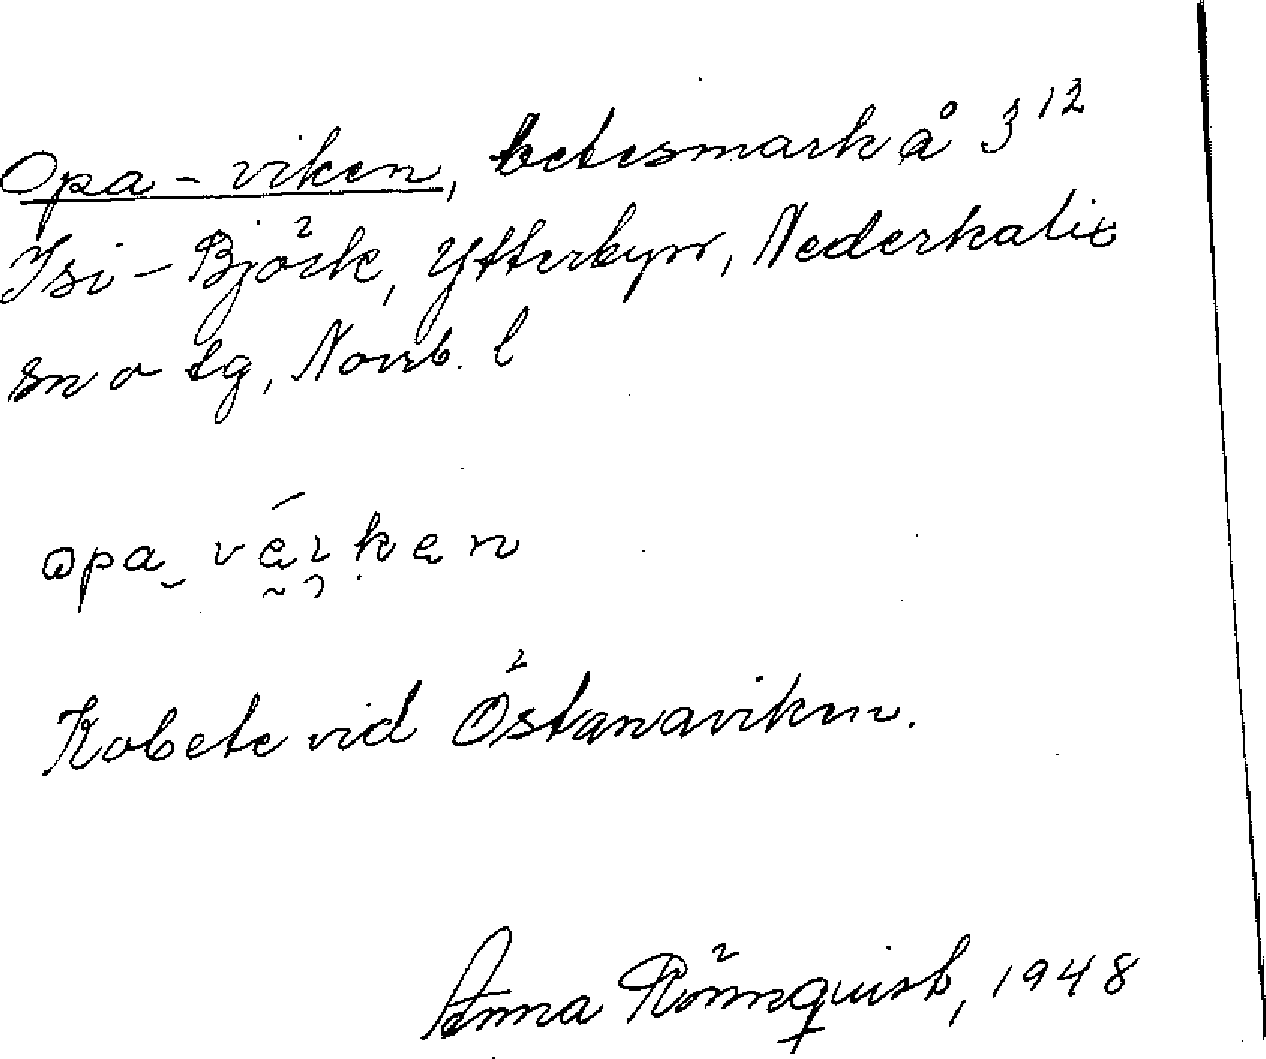 Opa-viken, betesmark å 3¹²
Isi-Björk, Ytterbyn, Nederkalix
sn o tg, Norrb. l
Kobete vid Östanaviken.
Anna Rönnquist, 1948